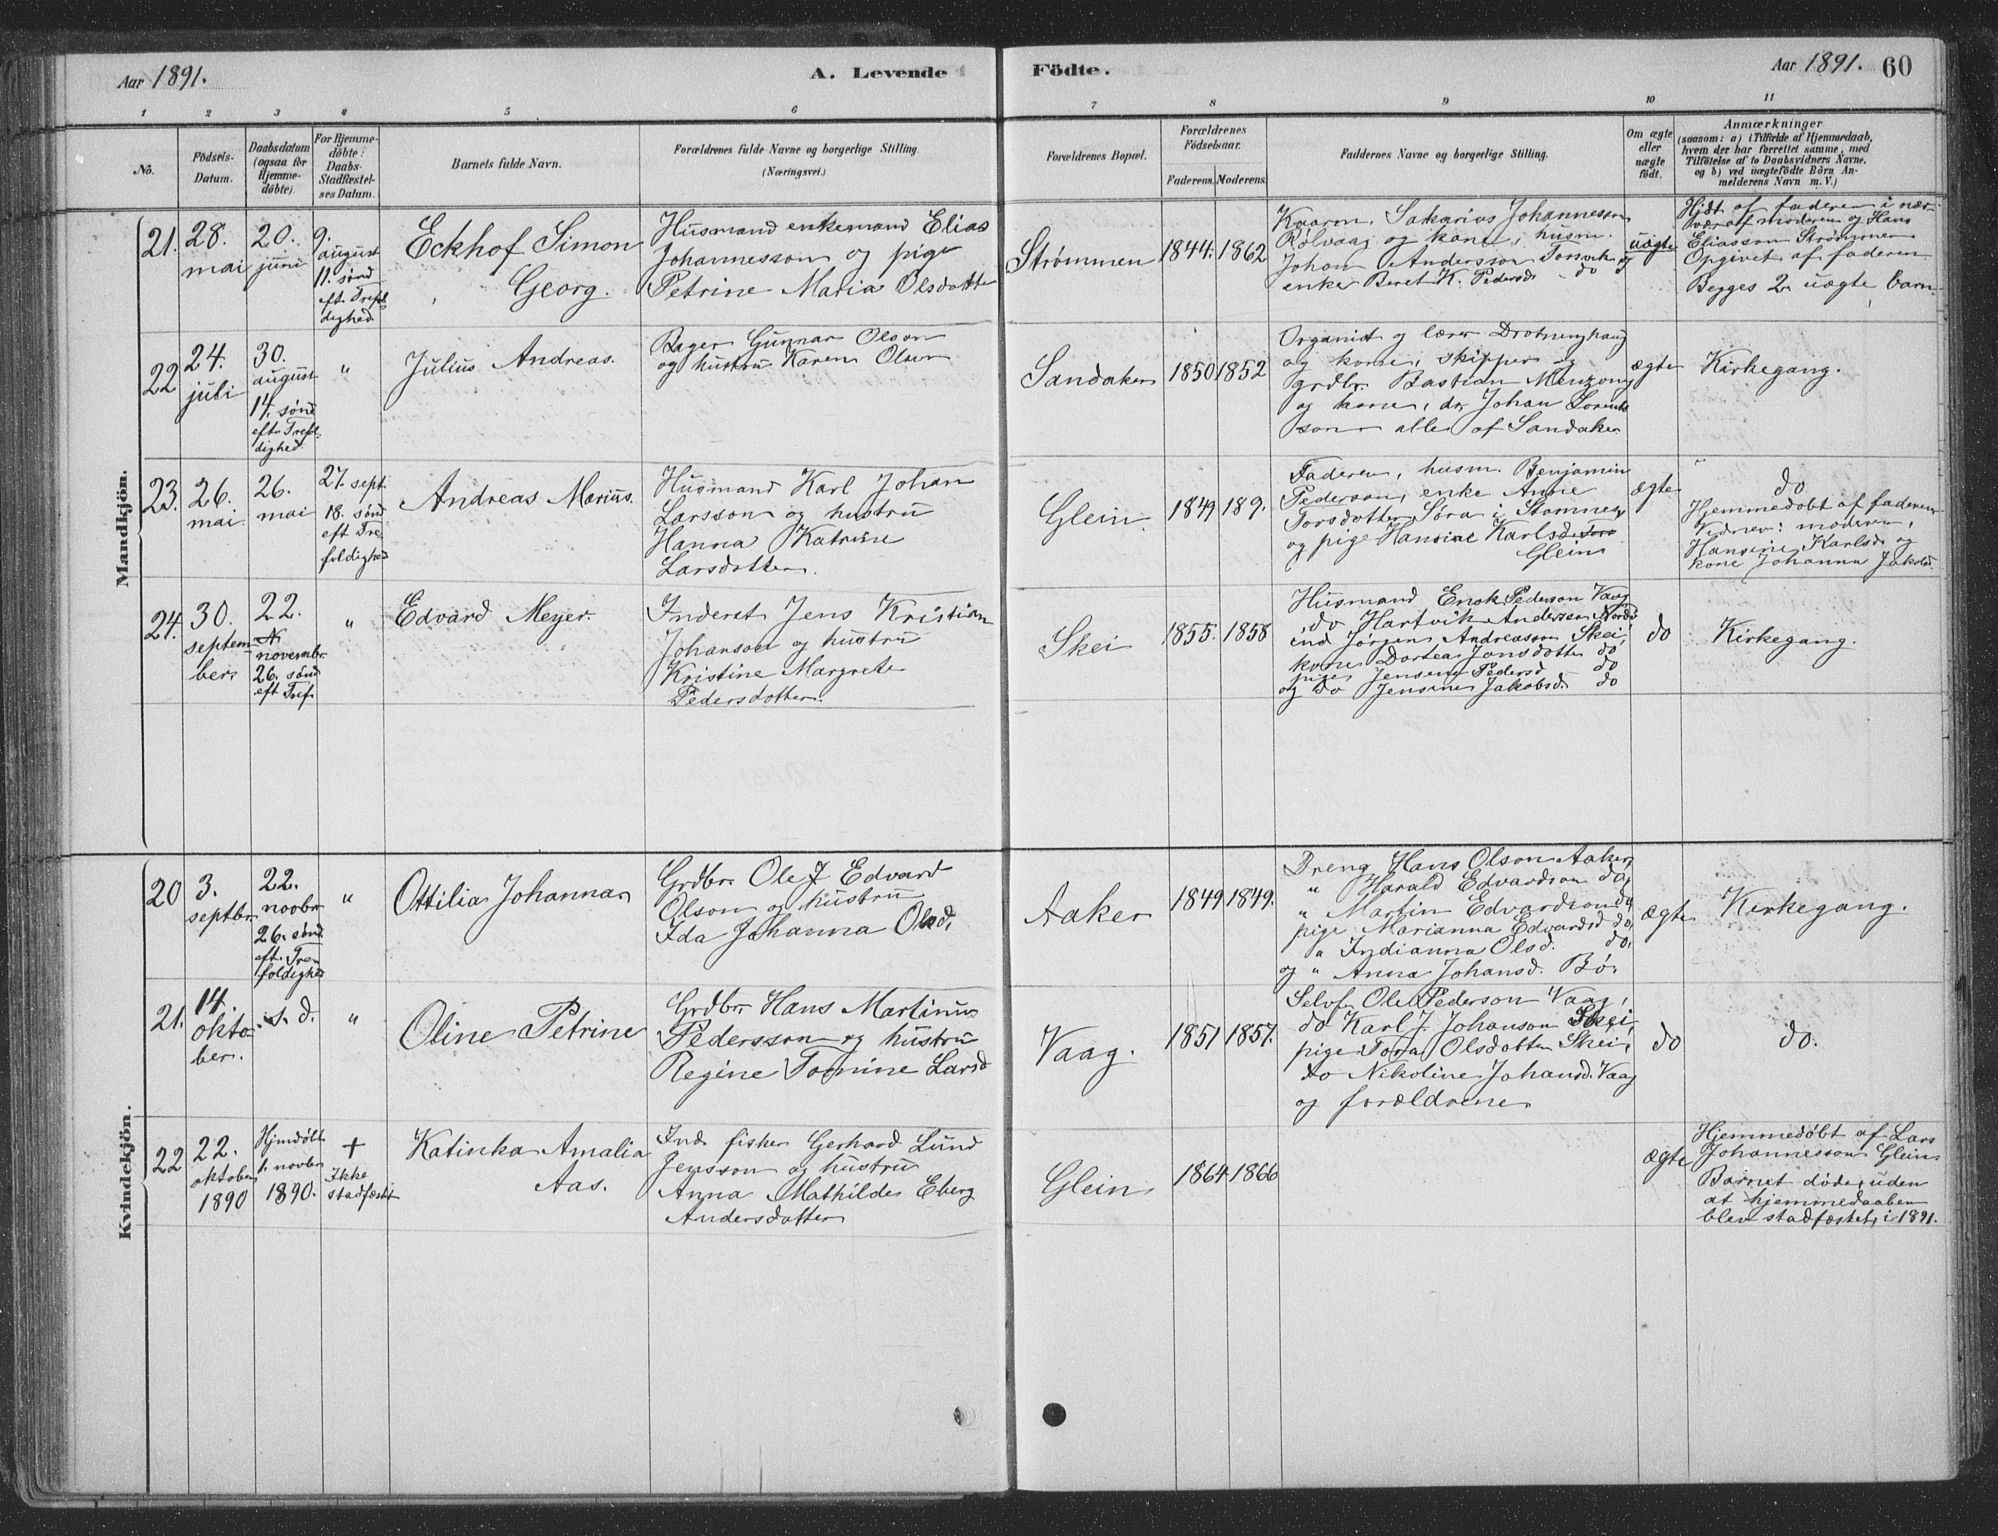 Aar 1891.
A. Levende
Födte.
Aar 1891. 60
1 2 3 4 5 6 7 8 9 10 11
No.
Födsels-
Datum.
Daabsdatum
(ogsaa for
Hjemme-
döbte).
For Hjemme-
döbte:
Daabs-
Stadfæstel-
ses Datum.
Barnets fulde Navn.
Forældrenes fulde Navne og borgerlige Stilling.
(Næringsvei.)
Forældrenes Bopæl.
Forældrenes
Födselsaar.
Faderens. Moderens.
Faddernes Navne og borgerlige Stilling.
Om ægte
eller
uægte
födt.
Anmærkninger
(saasom: a) i Tilfælde af Hjemmedaab,
hvem der har forrettet samme, med
Tilföielse af to Daabsvidners Navne,
og b) ved uægtefödte Börn An-
melderens Navn m. V.)
Mandkjön.
21.
28.
mai
20.
juni
9.
august
11. sønd
eft Trefol
dighed.
Eckhof Simon
Georg.
Husmand enkemand Elias
Johannesson og pige
Petrine Maria Olsdotter
Strømmen
1844. 1862
Kaarm. Sakarius Johannesson
Rølvaag og kone, husm.
Johan Andersson
enke Beret K. Pedersd do
uægte
Hjdt af faderen i nær-
vær af moderen og Hans
Eliasson Strømmen
Opgivet af faderen
Begges 2. uægte barn.
22
24.
juli
30.
august
14. sønd
eft Trefol
dighed.
"
Julius Andreas.
Bager Gunnar Olson
og hustru Karen Olsen
Sandaker
1850 1852
Organist og lærer Drotninghaug
og kone, skipper og
grdbr. Bastian
og kone, dr. Johan Lorents
son alle af Sandaker
ægte
Kirkegang.
23.
26.
mai.
26.
mai
27. sept.
18. sønd
eft Tre
foldighed
Andreas Marius.
Husmand Karl Johan
Larsson og hustru
Hanna Katrine
Larsdotter.
Glein.
1849 189.
Faderen, husm. Benjamin
Pederson, enke Anne
Torsdotter Søra i Stamnes
og pige Hansine Karlsd
Glein
ægte
do
Hjemmedøbt af faderen
Vidner: moderen,
Hansine Karlsd og
kone Johanna Jakobsd.
24.
30.
septem
ber
22.
novembr
26. sønd
eft Tref.
"
Edvard Meyer.
Inderst Jens Kristian
Johanson og hustru
Kristine Margrete
Pedersdotter.
Skei
1855. 1858
Husmand Enok Pederson Vaag
do Hartvik Andersen
ind Jørgen Andreasson Skei,
kone Dortea Jonsdotter do
pige Jensine Pedersd do
og do Jensine Jakobsd. do
do
Kirkegang.
Kvindekjön.
20
3.
septbr
22.
novbr
26. sønd
eft. Tre
foldighed
"
Ottilia Johanna
Grdbr Ole J Edvard
Olson og hustru
Ida Johanna Olsd.
Aaker
1849 1849.
Dreng Hans Olson Aaker,
" Harald Edvardson do,
" Martin Edvardson do
pige Marianna Edvardsd do,
" Indianna Olsd. do.
og " Anna Johansd. Bø.
ægte
Kirkegang.
21.
14.
okto
ber.
s. d.
"
Oline Petrine
Grdbr Hans Martinus
Pedersson og hustru
Regine Tomine Larsd
Vaag.
1851 1857.
Selvf Ole Pederson Vaag,
do Karl J. Johanson Skei,
pige Tora Olsdotter Skei,
do Nikoline Johansd. Vaag
og forældrene
do
do.
22
22.
oktober
1890
Hjmdøbt
1. novbr
1890.
+
Ikke
stadfæstet
Katinka Amalia
Aas.
Ind. fisker Gerhard Lund
Jensson og hustru
Anna Mathilde Eberg
Andersdotter
Glein
1864 1866
ægte
Hjemmedøbt af Lars
Johannesson Glein
Barnet døde uden
at hjemmedaaben
blev stadfæstet, i 1891.